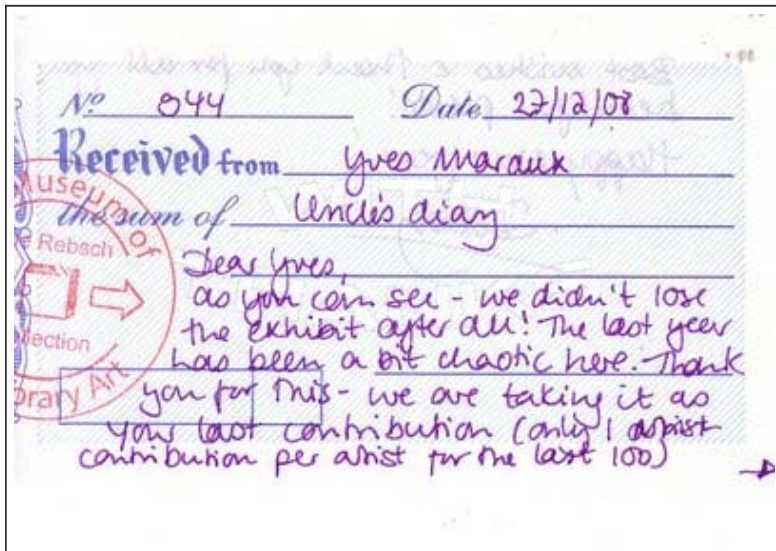 Nº 844 Date 27/12/08
Received from Yves Maraux
the sum of Uncle's diary
Dear Yves,
as you can see - we didn't lose
the exhibit after all! The last year
has been a bit chaotic here. Thank
you for this - we are taking it as
your last contribution (only 1
contribution per artist for the last 100)
Museum of
Rebsch
Art